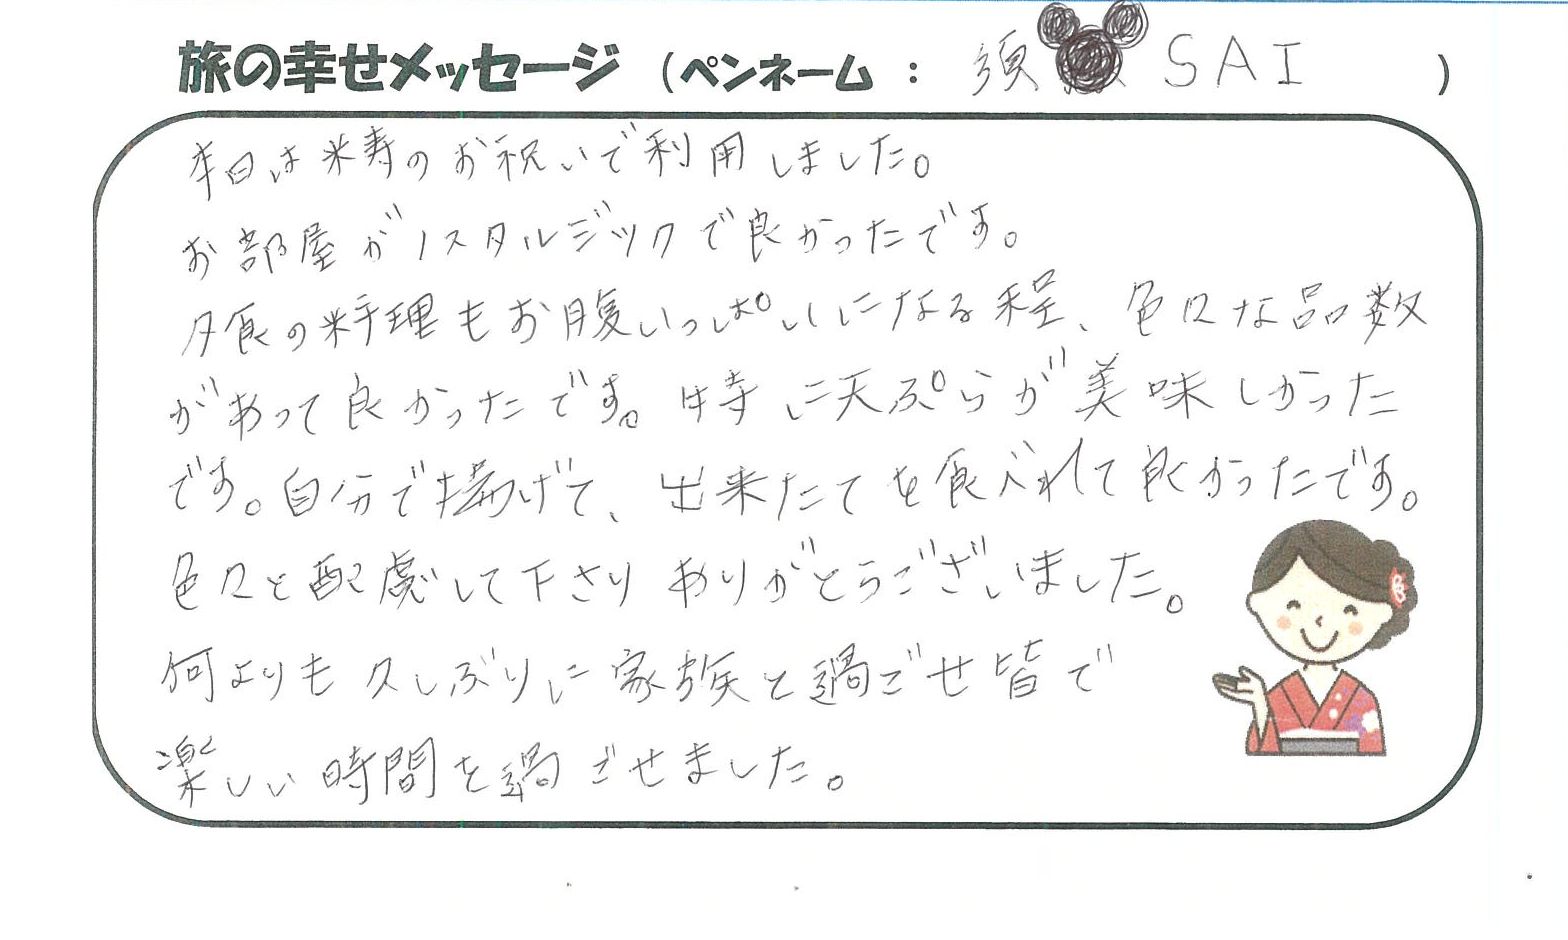 旅の幸せメッセージ (ペンネーム : 須 SAI )
本日は米寿のお祝いで利用しました。
お部屋がノスタルジックで良かったです。
夕食の料理もお腹いっぱいになる程、色々な品数
があって良かったです。特に天ぷらが美味しかった
です。自分で揚げて、出来たてを食べれて良かったです。
色々と配慮して下さりありがとうございました。
何よりも久しぶりに家族と過ごせ皆で
楽しい時間を過ごせました。